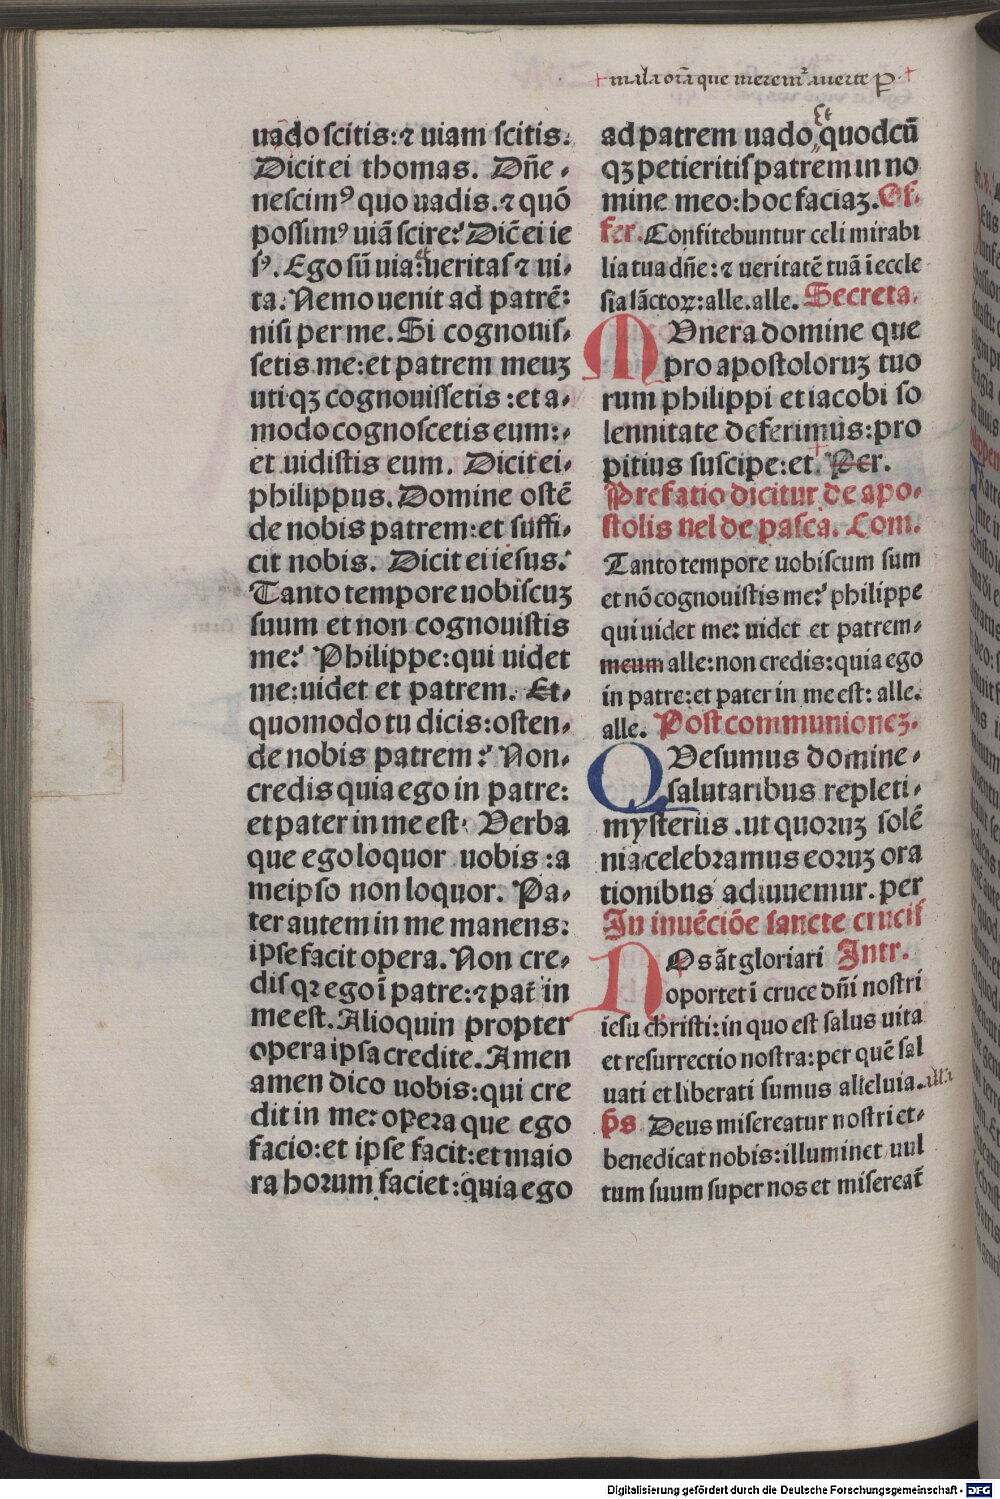 + mala oīa que meremr̄ auerte P +
uado scitis: ⁊ uiam scitis.
Dicit ei thomas. Dn̄e ⸗
nescimꝰ quo uadis. ⁊ quō
possimꝰ uiā scire? Dic̄ ei ie
sꝰ. Ego sū uia: et ueritas ⁊ ui⸗
ta. Nemo uenit ad patrē:
nisi per me. Si cognouis⸗
setis me: et patrem meuꝫ
utiqꝫ cognouissetis: et a⸗
modo cognoscetis eum:⸗
et uidistis eum. Dicit ei⸗
philippus. Domine ostē
de nobis patrem: et suffi⸗
cit nobis. Dicit ei iesus:
Tanto tempore uobiscuꝫ
suum et non cognouistis
me? Philippe: qui uidet
me: uidet et patrem. Et⸗
quomodo tu dicis: osten⸗
de nobis patrem? Non⸗
credis quia ego in patre:
et pater in me est. Verba
que ego loquor uobis: a
meipso non loquor. Pa⸗
ter autem in me manens:
ipse facit opera. Non cre⸗
dis qꝛ ego ī patre: ⁊ pat̄ in
me est. Alioquin propter
opera ipsa credite. Amen
amen dico uobis: qui cre
dit in me: opera que ego
facio: et ipse facit: et maio
ra horum faciet: quia ego
ad patrem uado, Et quodcū
qꝫ petieritis patrem in no
mine meo: hoc faciaꝫ. Of⸗
fer. Confitebuntur celi mirabi
lia tua dn̄e: ⁊ ueritatē tuā ī eccle
sia sāctoꝝ: alle. alle. Secreta.
MVnera domine que
pro apostoloruꝫ tuo
rum philippi et iacobi so
lennitate deferimus: pro
pitius suscipe: et. + Per.
Prefatio dicitur de apo⸗
stolis uel de pasca. Com.
Tanto tempore uobiscum sum
et nō cognouistis me? philippe
qui uidet me: uidet et patrem⸗
meum alle: non credis: quia ego
in patre: et pater in me est: alle.
alle. Post communioneꝫ.
QVesumus domine⸗
salutaribus repleti⸗
mysteriis. ut quoruꝫ solē
nia celebramus eoruꝫ ora
tionibus adiuuemur. per
In inuēciōe sancte crucis
NOs āt gloriari Intr.
oportet ī cruce dn̄i nostri
iesu christi: in quo est salus uita
et resurrectio nostra: per quē sal
uati et liberati sumus alleluia. alla
p̄s Deus misereatur nostri et⸗
benedicat nobis: illuminet uul
tum suum super nos et misereat̄
Digitalisierung gefördert durch die Deutsche Forschungsgemeinschaft - DFG